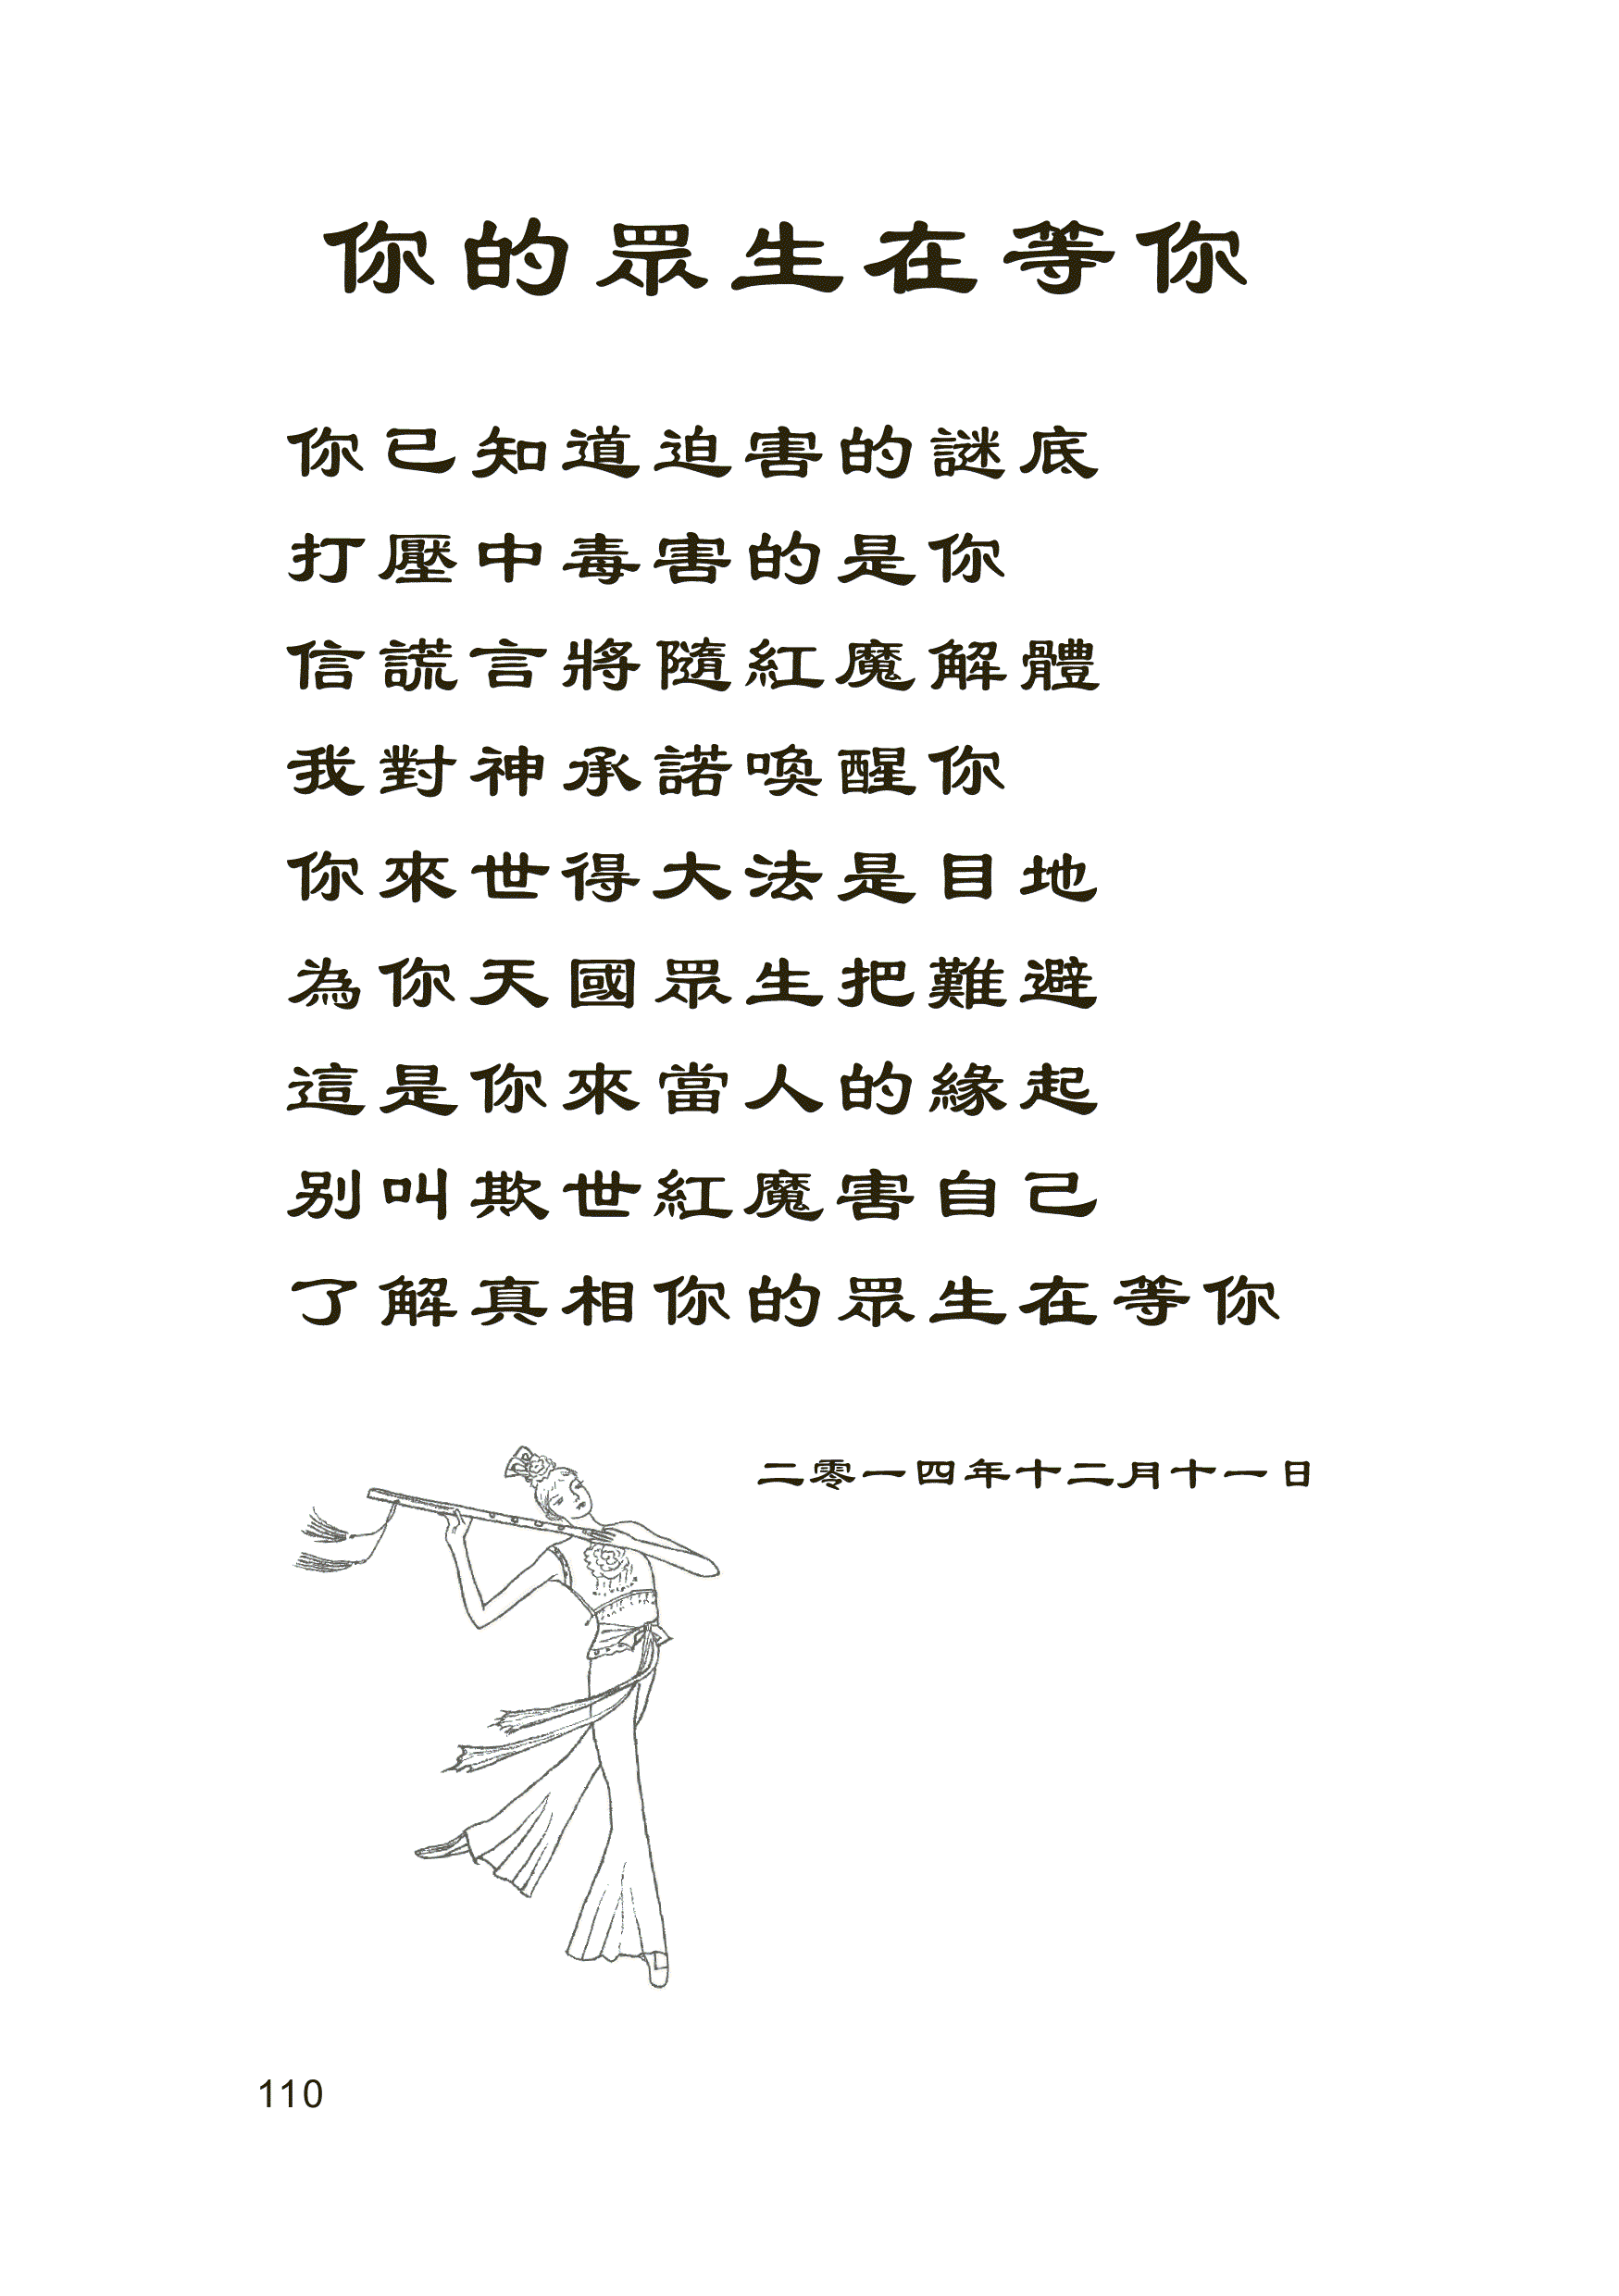 你的眾生在等你
你已知道迫害的謎底
打壓中毒害的是你
信謊言將隨紅魔解體
我對神承諾喚醒你
你來世得大法是目地
為你天國眾生把難避
這是你來當人的緣起
別叫欺世紅魔害自己
了解真相你的眾生在等你
二零一四年十二月十一日
110